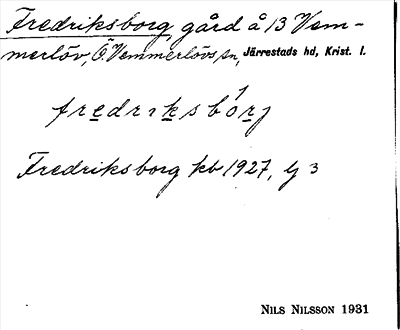 Fredriksborg, gård å 13 Vem-
merlöv, Ö. Vemmerlövs sn, Järrestads hd, Krist. l.
fredriksbórj
Fredriksborg kb 1927, Ej 3
NILS NILSSON 1931